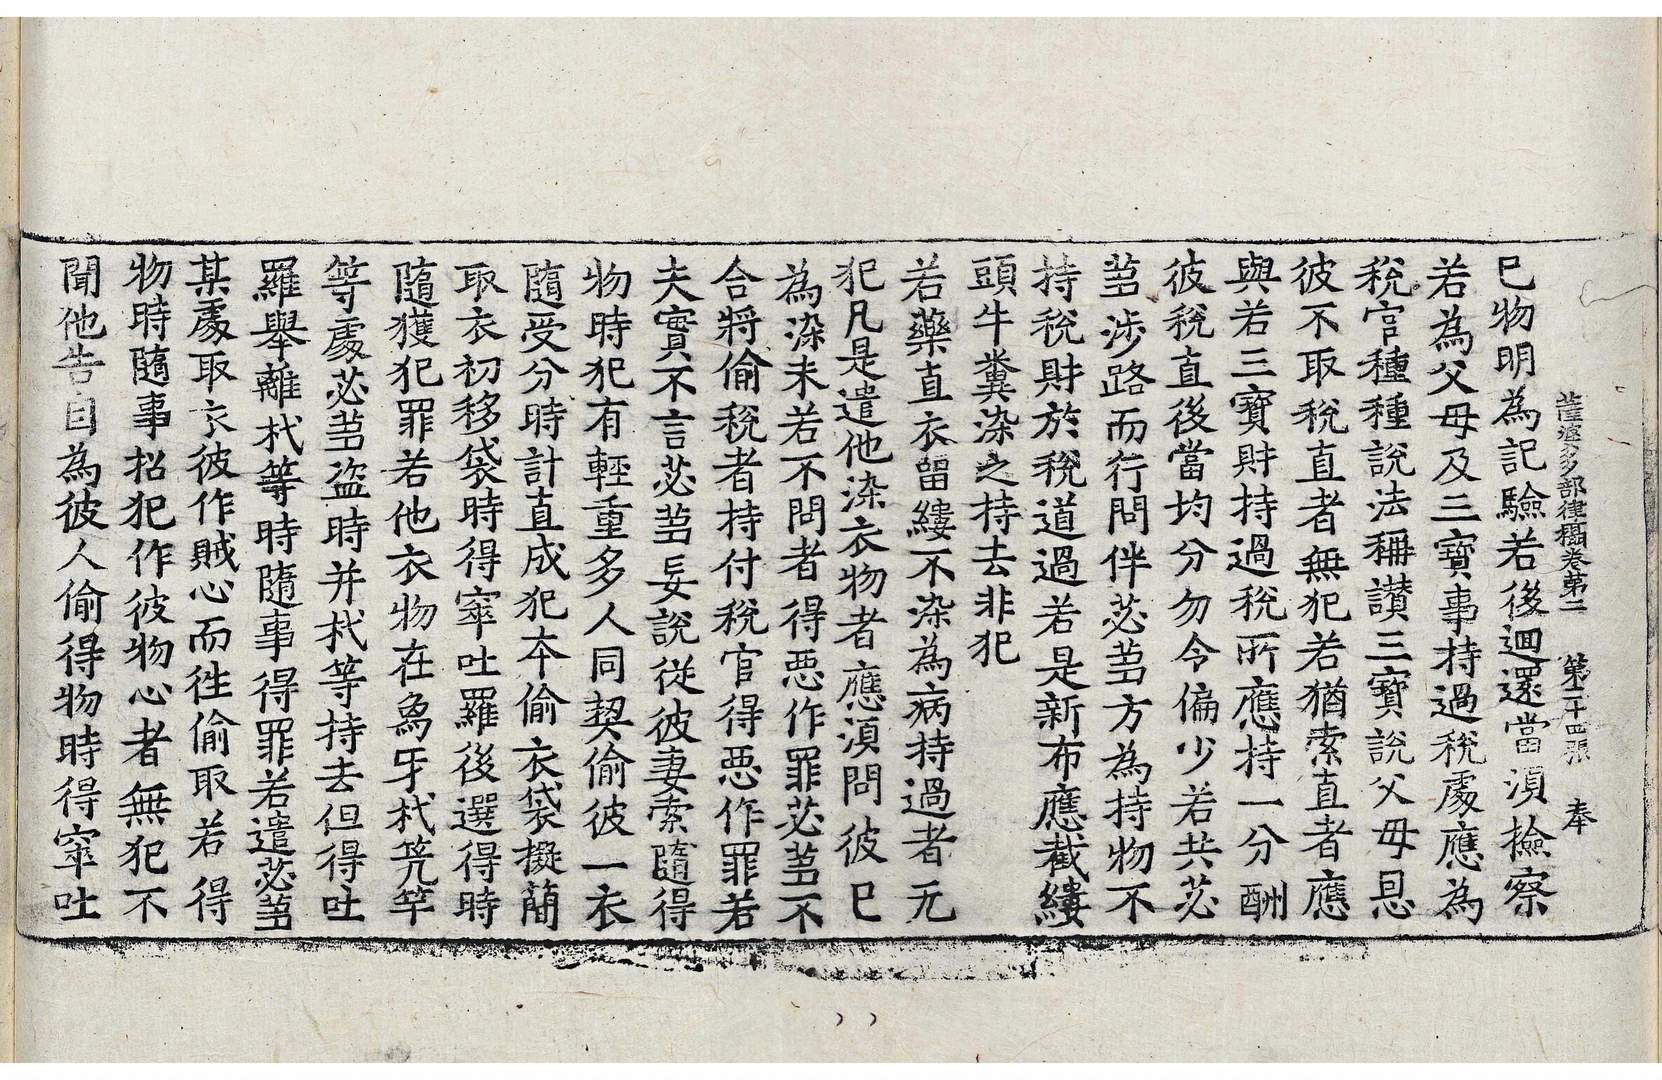 薩婆多部律攝卷第二　第二十四張　奉
已物明為記驗若後迴還當湏撿察
若為父母及三寶事持過稅處應為
稅官種種說法稱讃三寶說父母恩
彼不取稅直者無犯若猶索直者應
與若三寶財持過稅所應持一分酬
彼稅直後當均分勿令偏少若共苾
芻涉路而行問伴苾芻方為持物不
持稅財於稅道過若是新布應截縷
頭牛糞染之持去非犯
若藥直衣留縷不染為病持過者无
犯凡是遣他染衣物者應湏問彼已
為染未若不問者得惡作罪苾芻不
合將偷稅者持付稅官得惡作罪若
夫實不言苾芻妄說從彼妻索隨得
物時犯有輕重多人同契偷彼一衣
隨受分時計直成犯本偷衣袋擬簡
取衣初移袋時得窣吐羅後選得時
隨獲犯罪若他衣物在象牙杙笐竿
等處苾芻盗時并杙等持去但得吐
羅舉離杙等時隨事得罪若遣苾芻
某處取衣彼作賊心而往偷取若得
物時隨事招犯作彼物心者無犯不
聞他告自為彼人偷得物時得窣吐